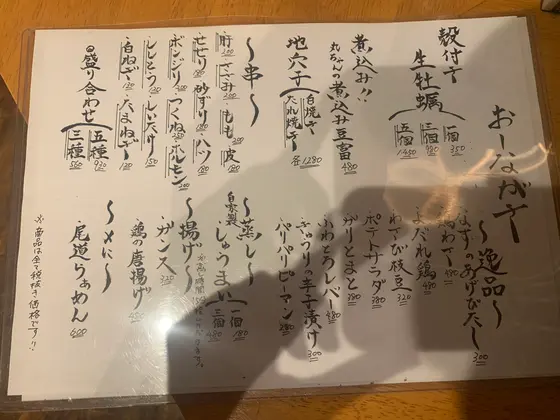 おーながき
殻付き
生牡蠣
一個 350
三個 980
五個 1,450
煮込み!!
丸ちゃんの煮込み豆富 480
地穴子
白焼き
たれ焼き
各 1,280
〜串〜
肝 ささみ もも 皮
せせり 砂ずり ハツ
ボンジリ つくね ホルモン
ししとう しいたけ 150
白ねぎ たまねぎ
◎盛り合わせ
五種
三種
〜逸品〜
なすのあげびたし 300
よだれ鶏 480
わさび枝豆 320
ポテトサラダ 380
ガリとまと 380
ふわとろレバー 380
きゅうりの辛子漬け 300
パリパリピーマン 280
〜蒸し〜
自家製
しゅうまい
一個 180
三個 480
〜揚げ〜
ガンス
鶏の唐揚げ 480
〜〆に〜
尾道らぁめん 600
※商品は全て税抜き価格です!!